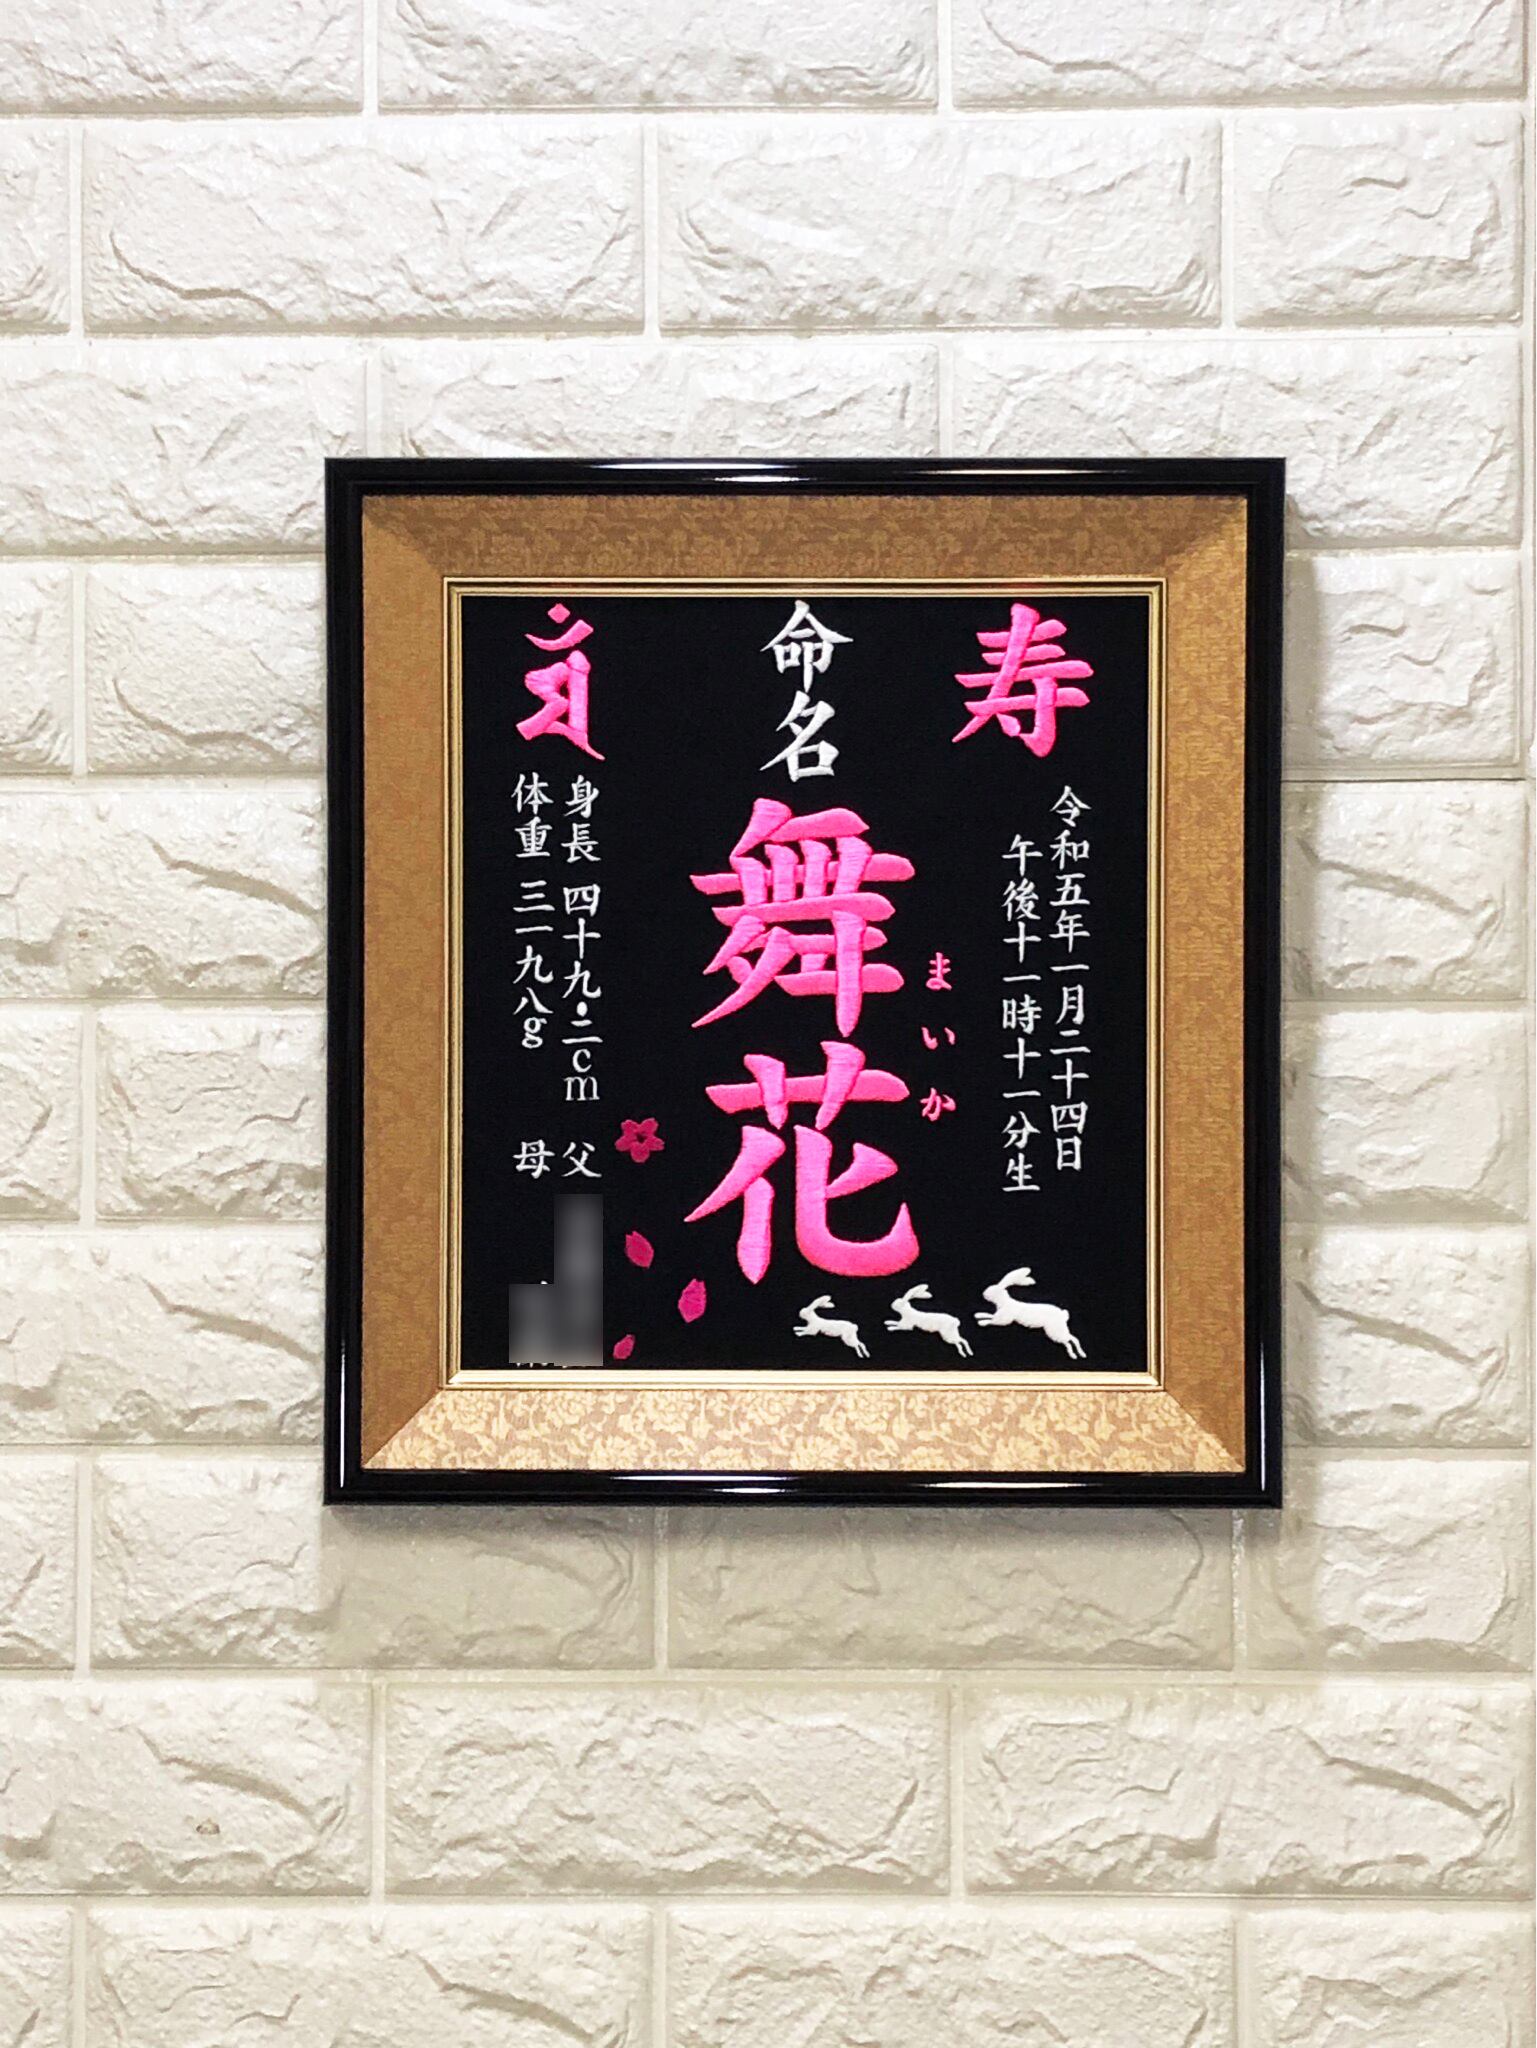 寿
令和五年一月二十四日
午後十一時十一分生
命名
舞花
まいか
身長 四十九・二cm
体重 三一九八g
父
母